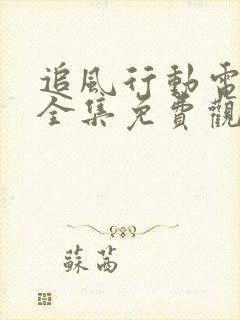 追風行動電
全集免費觀
蘇茜